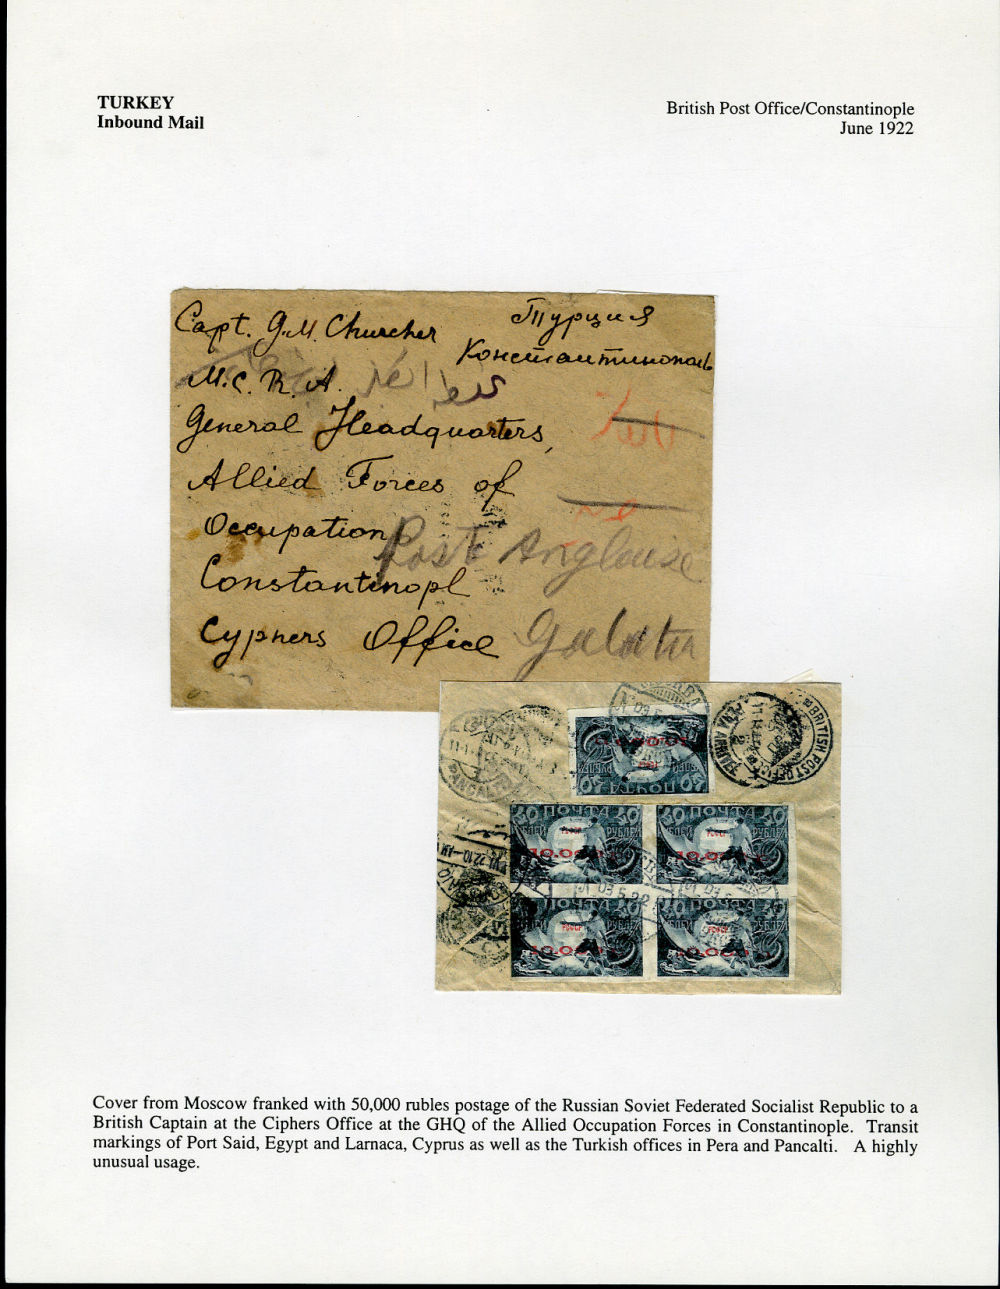 TURKEY
Inbound Mail
British Post Office/Constantinople
June 1922
Capt. G.M. Churcher
Турция
Константинополь
M.C. R.A.
General Headquarters,
Allied Forces of
Occupation
Post Anglaise
Constantinopl
Cyphers Office
Galata
BRITISH POST OFFICE
ПОЧТА
40 ПОЧТА 40
РУБЛЕЙ
РСФСР
10.000
40 ПОЧТА 40
РУБЛЕЙ
РСФСР
10.000
ПОЧТА
РСФСР
10.000
ПОЧТА
РУБЛЕЙ
РСФСР
10.000
Cover from Moscow franked with 50,000 rubles postage of the Russian Soviet Federated Socialist Republic to a
British Captain at the Ciphers Office at the GHQ of the Allied Occupation Forces in Constantinople.  Transit
markings of Port Said, Egypt and Larnaca, Cyprus as well as the Turkish offices in Pera and Pancalti.   A highly
unusual usage.